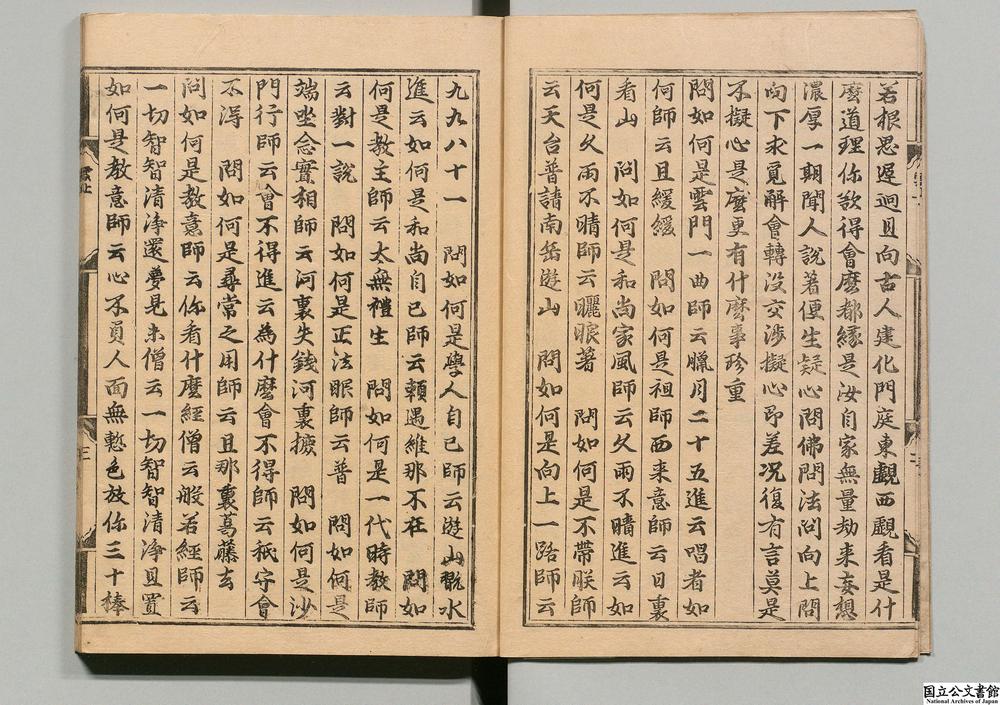 若根思遲迴且向古人建化門庭東覰西覰看是什
麼道理你欲得會麼都緣是汝自家無量劫来妄想
濃厚一期聞人說著便生疑心問佛問法問向上問
向下求覓解會轉沒交涉擬心即差况復有言莫是
不擬心是麼更有什麼事珍重
問如何是雲門一曲師云臘月二十五進云唱者如
何師云且緩緩　問如何是祖師西来意師云日裏
看山　問如何是和尚家風師云久雨不晴進云如
何是久雨不晴師云曬眼著　問如何是不帶朕師
云天台普請南岳遊山　問如何是向上一路師云
九九八十一　問如何是學人自己師云遊山翫水
進云如何是和尚自己師云頼遇維那不在　問如
何是教主師云太無禮生　問如何是一代時教師
云對一說　問如何是正法眼師云普　問如何是
端坐念實相師云河裏失錢河裏摝　問如何是沙
門行師云會不得進云為什麼會不得師云秖守會
不得　問如何是尋常之用師云且那裏葛藤去
問如何是教意師云你看什麼經僧云般若經師云
一切智智清淨還夢見未僧云一切智智清淨且置
如何是教意師云心不負人面無慙色放你三十棒
三
国立公文書館
National Archives of Japan